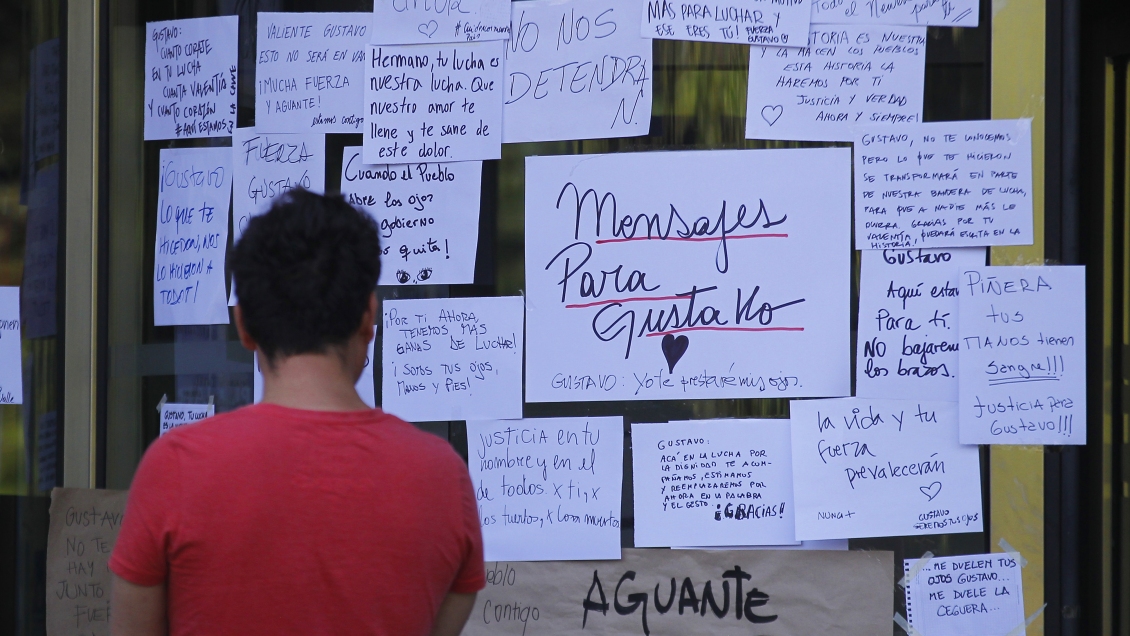 GUSTAVO:
CUANTO CORATE
EN TU LUCHA
CUANTA VALENTÍA
Y CUANTO CORAZÓN
#AQUI ESTAMOS
VALIENTE GUSTAVO
ESTO NO SERÁ EN
¡MUCHA FUERZA
Y AGUANTE!
estamos contigo
Hermano, tu lucha es
nuestra lucha. Que
nuestro amor te
llene y te sane de
este dolor.
NO NOS
DETENDRA
N!
MAS PARA LUCHAR Y
ESE ERES TÚ! FUERZA
GUSTAVO
Todo el
ISTORIA ES NUESTRA
Y LA HACEN LOS PUEBLOS
ESTA HISTORIA LA
HAREMOS POR TÍ
JUSTICIA Y VERDAD
AHORA Y SIEMPRE!
GUSTAVO, NO TE CONOCEMOS
PERO LO QUE TE HICIERON
SE TRANSFORMARÁ EN PARTE
DE NUESTRA BANDERA DE LUCHA,
PARA QUE A NADIE MÁS LE
OCURRA GRACIAS POR TU
VALENTÍA, QUEDARÁ ESCRITA EN LA
HISTORIA.
¡GUSTAVO
LO QUE TE
HICIERON, NOS
LO HICIERON A
TODOS!
FUERZA
GUSTAVO
Cuando el Pueblo
Abre los ojos
gobierno
quita!
Mensajes
Para
Gustavo
GUSTAVO: Yo te prestaré mis ojos.
GUSTAVO
Aquí estam
Para ti.
NO bajarem
los brazos.
PIÑERA
tus
MANOS tienen
Sangre!!!
Justicia para
Gustavo!!!
¡POR TI AHORA
TENEMOS MÁS
GANAS DE LUCHAR!
¡SOMOS TUS OJOS,
MANOS Y PIES!
GUSTAVO, TU LUCHA
JUSTICIA EN TU
NOMBRE Y EN EL
DE TODOS. X TI, X
los tuertos, x los muertos
GUSTAVO:
ACÁ EN LA LUCHA POR
LA DIGNIDAD TE ACOM-
PAÑAMOS, ESTIMAMOS
Y REEMPLAZAREMOS POR
AHORA EN LA PALABRA
Y EL GESTO.
¡GRACIAS!
la vida y tu
fuerza
prevalecerán
NUNCA+
GUSTAVO
SEREMOS TUS OJOS
GUSTAV
NO TE
HAY
JUNTO
FUER
Contigo
AGUANTE
...ME DUELEN TUS
OJOS GUSTAVO...
ME DUELE LA
CEGUERA...